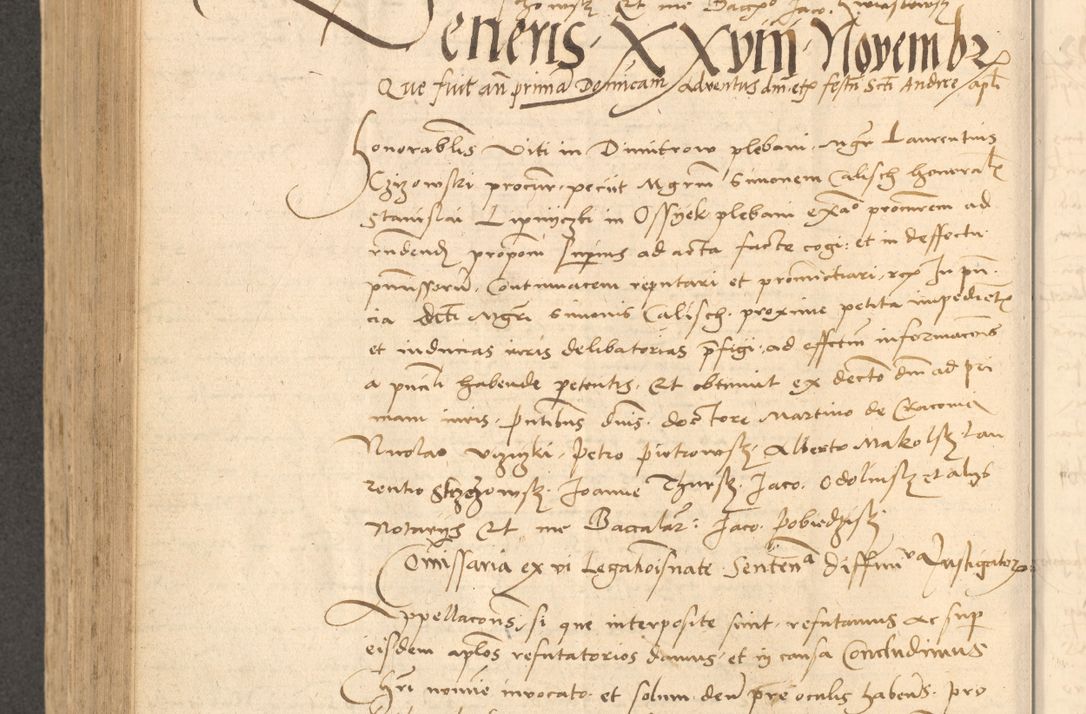 Veneris XXviii Novembr
Que fuit an̄ primā Dominicam adventus dm̄ etχ festū Scti Andree apłi
Honorabilis Viti in Dimitrow plebani Mgr Laurentius
Czizowski procur peciit Mgrm Simonem Calisch honorabł
Stanislai Lipniczki in Ossyek plebani exa° procurem ad
rn̄dend proponi suprius ad acta facte cogi et in deffectu
pmissorū Contumacem reputari et pronunctiari rcχ In pn̄
cia dcti Mgri Simonis Calisch proxime petita impedientχ
et inducias iuris delibatorias p̄figi ad effectum informacōnis
a pn̄cti habende petentis Et obtinuit ex decto dn̄i ad pri
mam iuris pn̄tibus dn̄is doctore Martino de Cracovia
Nicolao Petro Piotrowskj Alberto Makolskj Lau
rentio Strzezowskj Joanne Thurskj Jaco Odolinskj et aliis
Notariis Et me Baccalar Jaco Pobiedzskj
Com̄issaria ex vi Legationis nate Sentenª diffiniva Instigator
Appellacōns si que interposite sint refutamus ac sup
eisdem aplōs refutatorios damus et in causa Concludimus
Chri nomine invocato et solum deū pre oculis habens pro